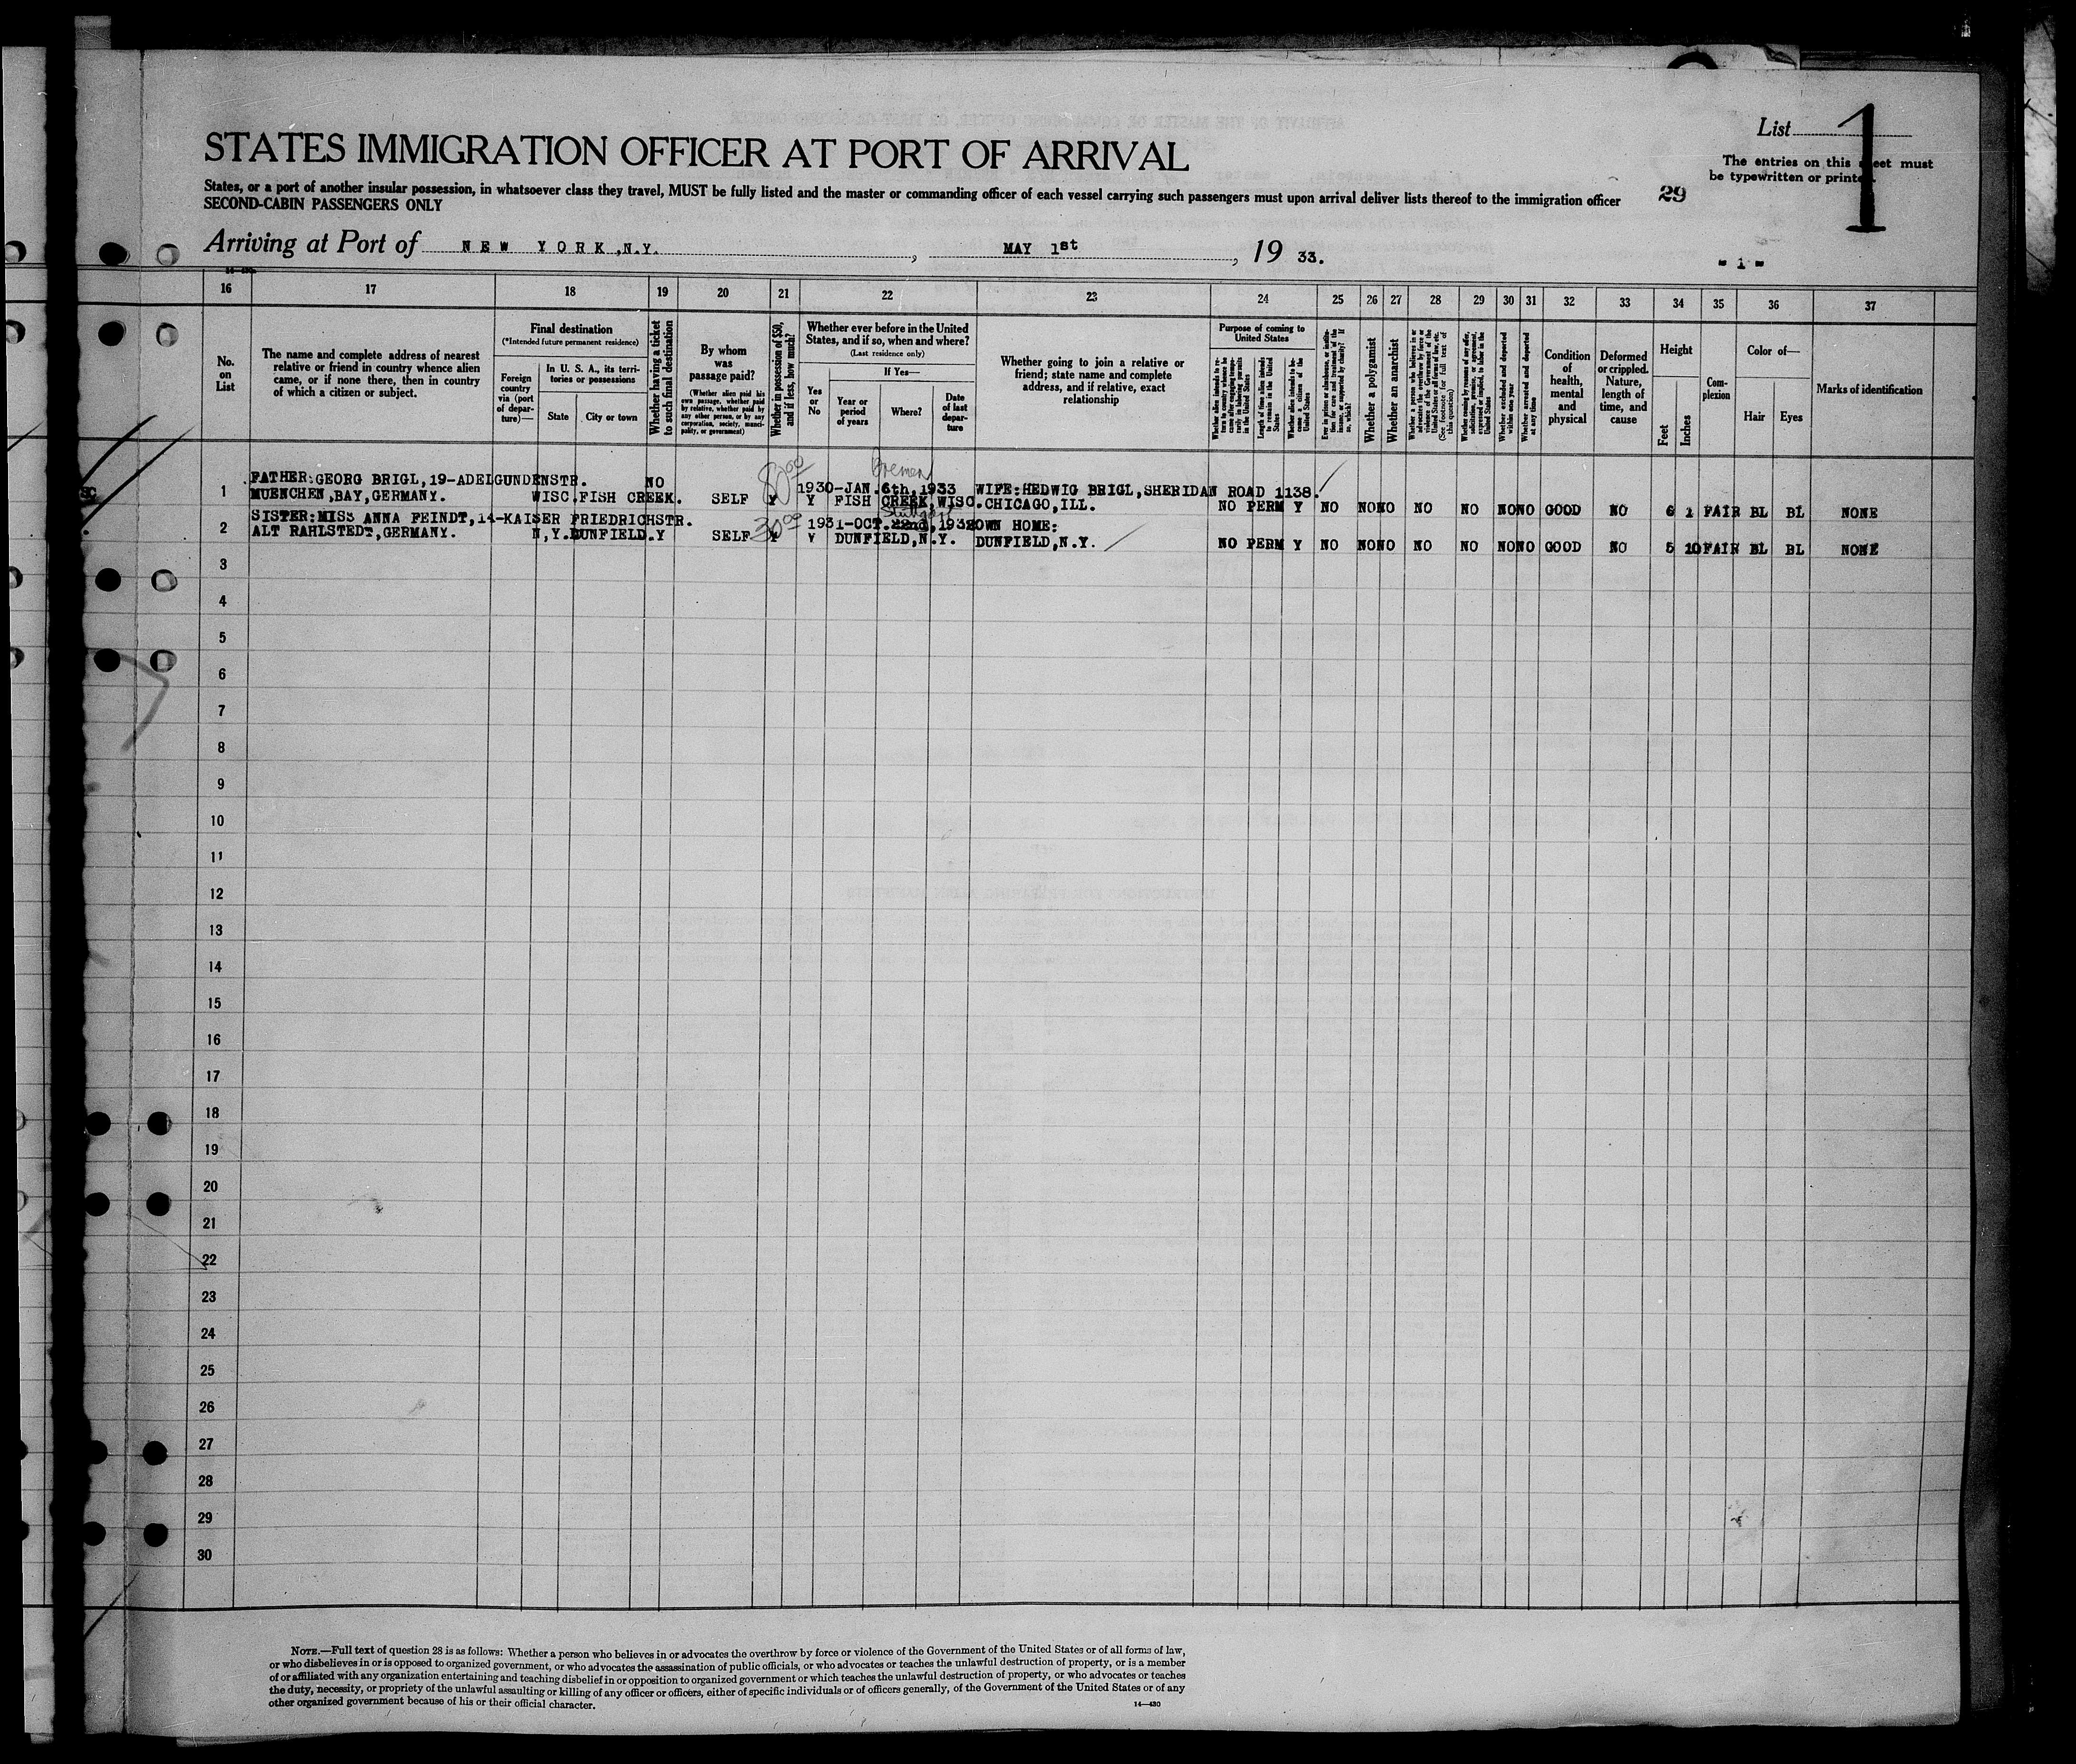 List 1
STATES IMMIGRATION OFFICER AT PORT OF ARRIVAL
The entries on this sheet must
be typewritten or printed.
States, or a port of another insular possession, in whatsoever class they travel, MUST be fully listed and the master or commanding officer of each vessel carrying such passengers must upon arrival deliver lists thereof to the immigration officer
29
SECOND-CABIN PASSENGERS ONLY
Arriving at Port of NEW YORK,N.Y. , MAY 1st , 19 33.
- 1 -
16 17 18 19 20 21 22 23 24 25 26 27 28 29 30 31 32 33 34 35 36 37
No. on List
The name and complete address of nearest relative or friend in country whence alien came, or if none there, then in country of which a citizen or subject.
Final destination
(*Intended future permanent residence)
Foreign country via (port of departure)—
In U. S. A., its territories or possessions
State
City or town
Whether having a ticket to such final destination
By whom was passage paid?
(Whether alien paid his own passage, whether paid by relative, whether paid by any other person, or by any corporation, society, municipality, or government)
Whether in possession of $50, and if less, how much?
Whether ever before in the United States, and if so, when and where?
(Last residence only)
Yes or No
If Yes—
Year or period of years
Where?
Date of last departure
Whether going to join a relative or friend; state name and complete address, and if relative, exact relationship
Purpose of coming to United States
Length of time alien intends to remain in the United States
Whether alien intends to become a citizen of the United States
Whether a polygamist
Whether an anarchist
Whether arrested and deported at any time
Condition of health, mental and physical
Deformed or crippled. Nature, length of time, and cause
Height
Feet
Inches
Complexion
Color of—
Hair
Eyes
Marks of identification
80 00 Bremen
FATHER:GEORG BRIGL,19-ADELGUNDENSTR. NO 1930-JAN.6th,1933 WIFE:HEDWIG BRIGL,SHERIDAN ROAD 1138.
1 MUENCHEN,BAY,GERMANY. WISC.FISH CREEK. SELF Y Y FISH CREEK,WISC.CHICAGO,ILL. NO PERM Y NO NO NO NO NO NO NO GOOD NO 6 1 FAIR BL BL NONE
SISTER:MISS ANNA FEINDT,14-KAISER FRIEDRICHSTR. 30 00 1931-OCT.22nd,1932 OWN HOME:
2 ALT RAHLSTEDT,GERMANY. N,Y.DUNFIELD.Y SELF Y Y DUNFIELD,N.Y. DUNFIELD,N.Y. NO PERM Y NO NO NO NO NO NO NO GOOD NO 5 10 FAIR BL BL NONE
3
4
5
6
7
8
9
10
11
12
13
14
15
16
17
18
19
20
21
22
23
24
25
26
27
28
29
30
NOTE.—Full text of question 28 is as follows: Whether a person who believes in or advocates the overthrow by force or violence of the Government of the United States or of all forms of law,
or who disbelieves in or is opposed to organized government, or who advocates the assassination of public officials, or who advocates or teaches the unlawful destruction of property, or is a member
of or affiliated with any organization entertaining and teaching disbelief in or opposition to organized government or which teaches the unlawful destruction of property, or who advocates or teaches
the duty, necessity, or propriety of the unlawful assaulting or killing of any officer or officers, either of specific individuals or of officers generally, of the Government of the United States or of any
other organized government because of his or their official character.
14—430